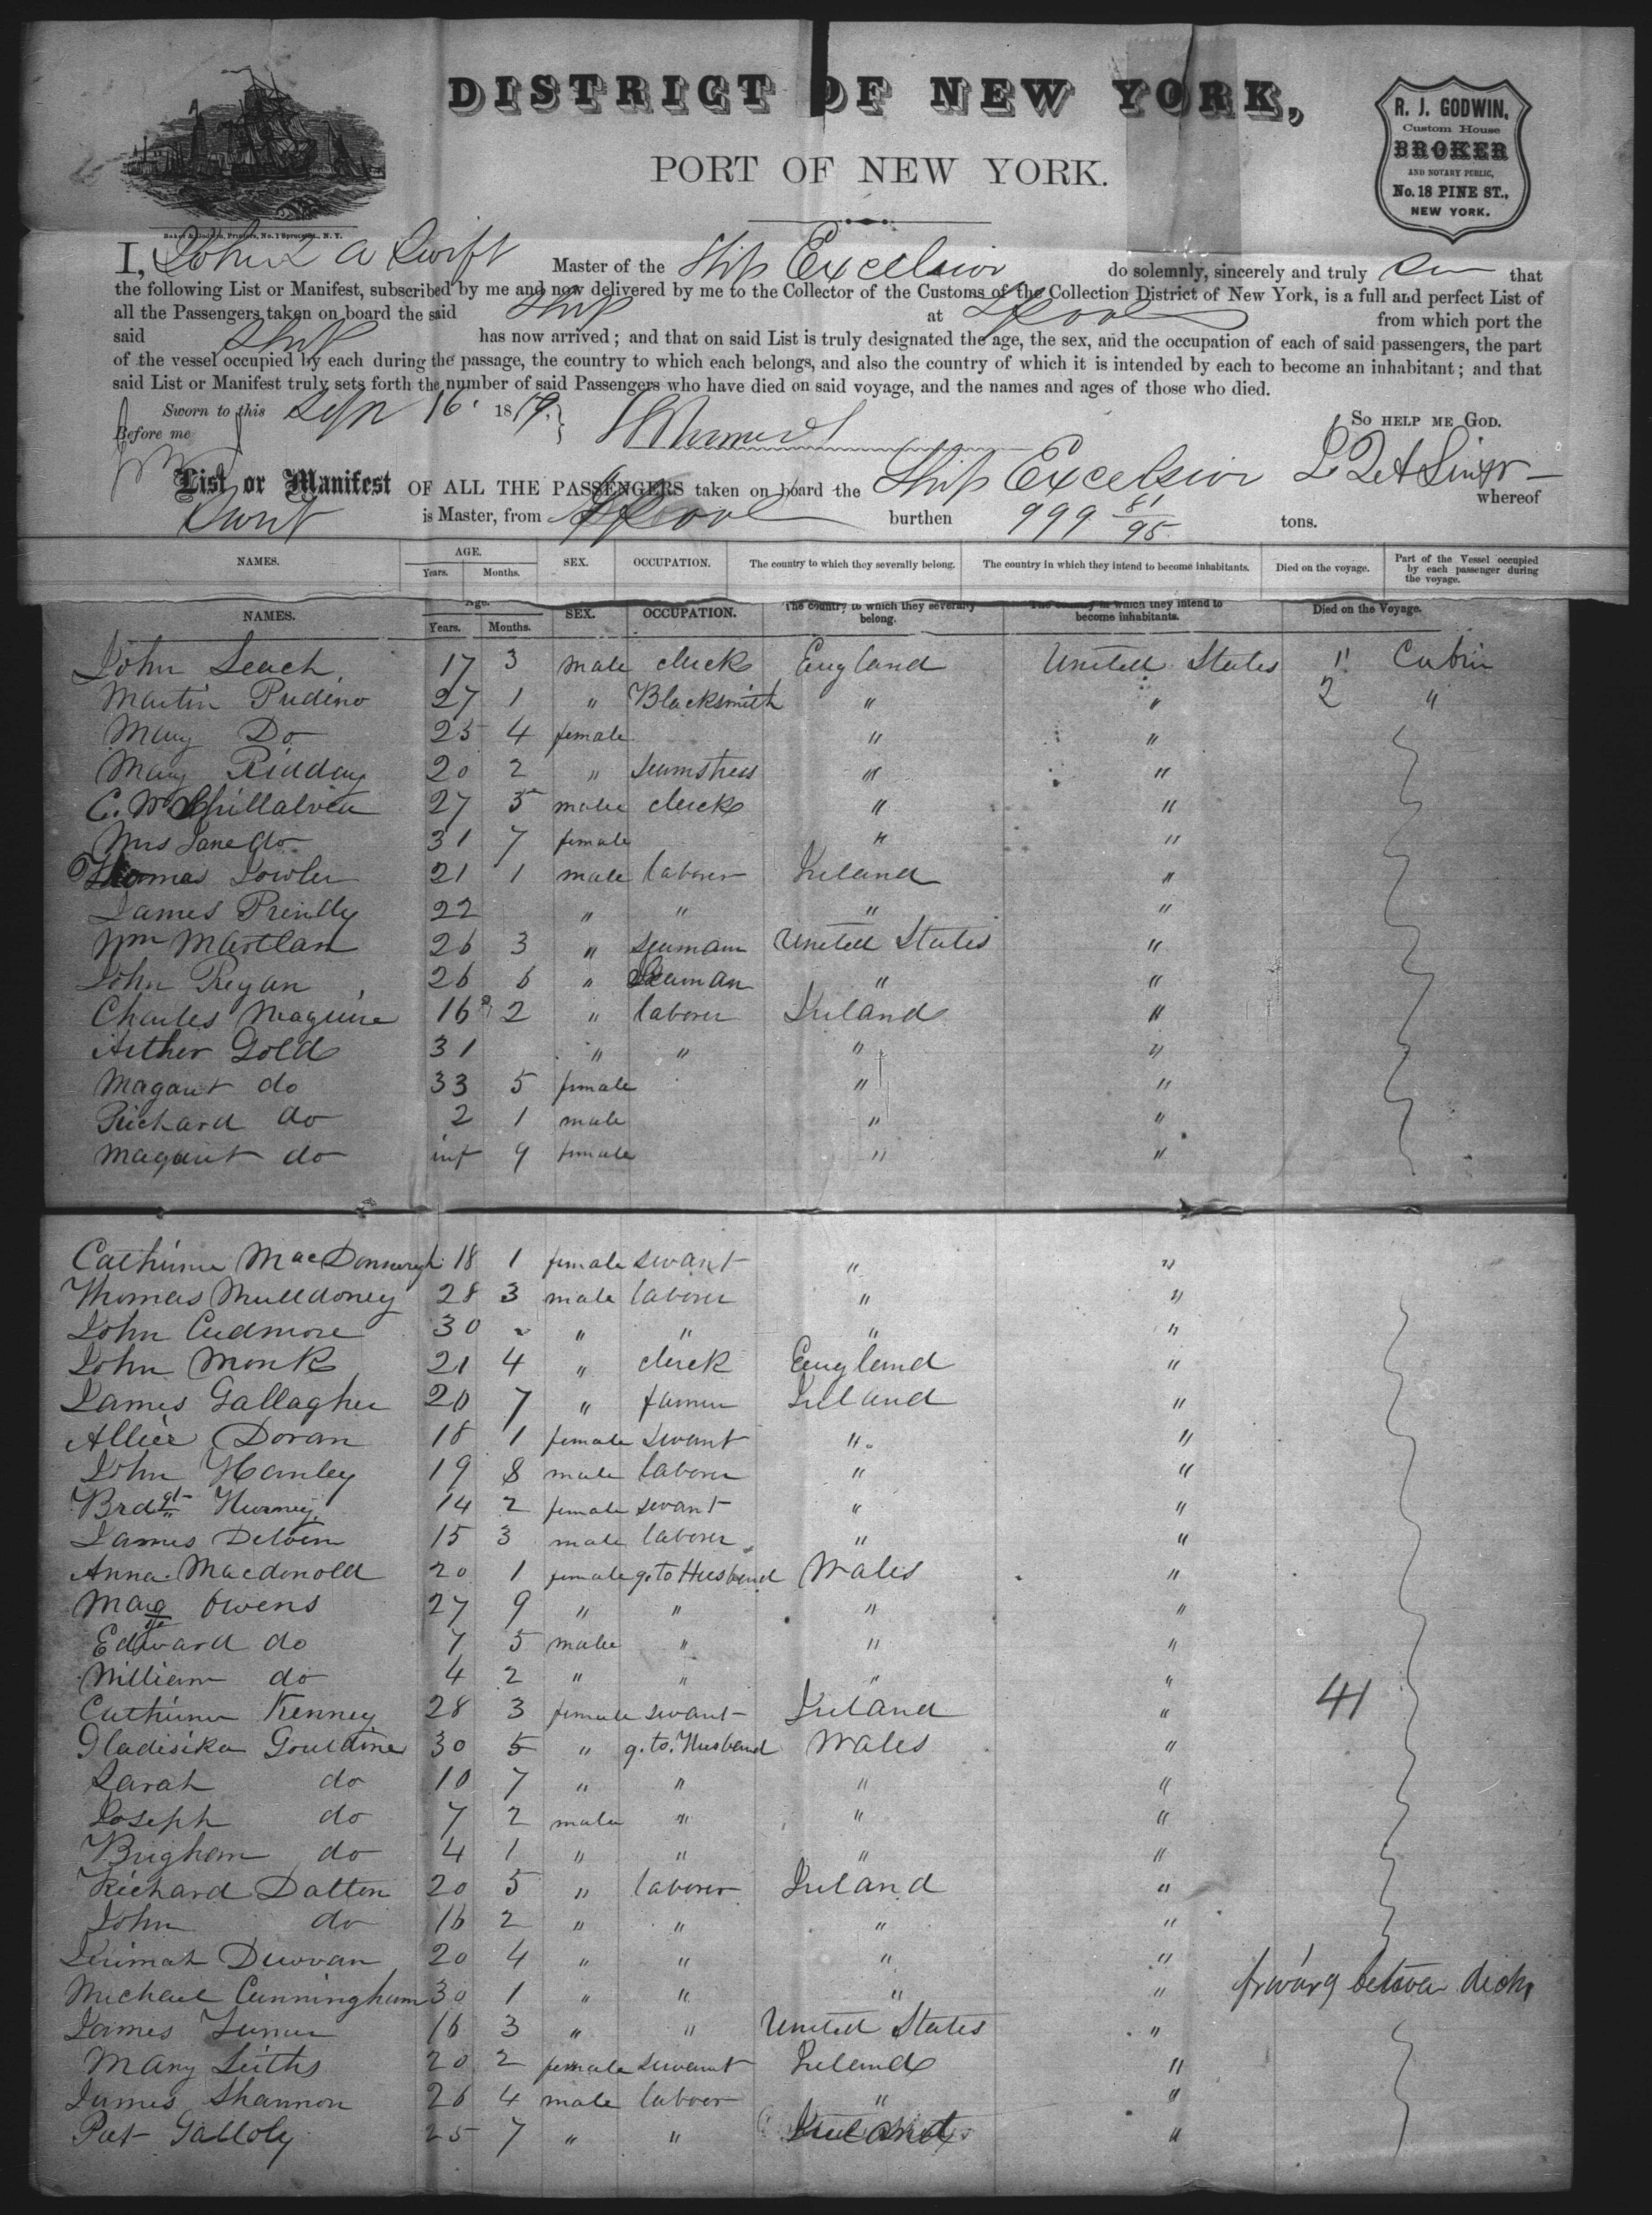 DISTRICT OF NEW YORK,
PORT OF NEW YORK.
R. J. GODWIN,
Custom House
BROKER
AND NOTARY PUBLIC,
No. 18 PINE ST.,
NEW YORK.
I, John A Swift Master of the Ship Excelsior do solemnly, sincerely and truly that
the following List or Manifest, subscribed by me and now delivered by me to the Collector of the Customs of the Collection District of New York, is a full and perfect List of
all the Passengers taken on board the said Ship at LPool from which port the
said Ship has now arrived; and that on said List is truly designated the age, the sex, and the occupation of each of said passengers, the part
of the vessel occupied by each during the passage, the country to which each belongs, and also the country of which it is intended by each to become an inhabitant; and that
said List or Manifest truly sets forth the number of said Passengers who have died on said voyage, and the names and ages of those who died.
Sworn to this 16 18 SO HELP ME GOD.
Before me
List or Manifest OF ALL THE PASSENGERS taken on board the Ship Excelsior whereof
is Master, from LPool burthen 999 81/95 tons.
NAMES. AGE. Years. Months. SEX. OCCUPATION. The country to which they severally belong. The country in which they intend to become inhabitants. Died on the voyage. Part of the Vessel occupied by each passenger during the voyage.
NAMES. Age. Years. Months. SEX. OCCUPATION. The country to which they severally belong. The country in which they intend to become inhabitants. Died on the Voyage.
John Leach 17 3 male clerk England United States 1 Cabin
Martin Prideno 27 1 " Blacksmith " " 2 "
Mary Do 25 4 female " "
Mary 20 2 " seamstress " "
C. 27 5 male clerk " "
Mrs Jane do 31 7 female " "
Thomas Lowler 21 1 male laborer Ireland "
James 22 " " " "
Wm Martlan 26 3 " seaman United States "
John Regan 26 6 " Seaman " "
Charles Maguire 16 2 " laborer Ireland "
Arther Gold 31 " " " "
Magaret do 33 5 female " "
Richard do 2 1 male " "
Magaret do inf 9 female " "
Catherine MacDonnough 18 1 female servant " "
Thomas Mulldoney 28 3 male laborer " "
John Cudmore 30 - " " " "
John Monk 21 4 " clerk England "
James Gallagher 20 7 " farmer Ireland "
Allice Doran 18 1 female servant " "
John Hanley 19 8 male laborer " "
Brdgt 14 2 female servant " "
James 15 3 male laborer " "
Anna Macdonold 20 1 female g. to Husband Wales "
Mag Owens 27 9 " " " "
Edward do 7 5 male " " "
William do 4 2 " " " "
Catherine Kenney 28 3 female servant Ireland " 41
Gladisika Gouldine 30 5 " g. to. Husband Wales "
Sarah do 10 7 " " " "
Joseph do 7 2 male " " "
Brigham do 4 1 " " " "
Richard Dalton 20 5 " laborer Ireland "
John do 16 2 " " " "
20 4 " " " "
Michael Cunningham 30 1 " " " "
James 16 3 " " United States "
Mary Leiths 20 2 female servant Ireland "
James Shannon 26 4 male laborer " "
Pat Galloly 25 7 " " Ireland "